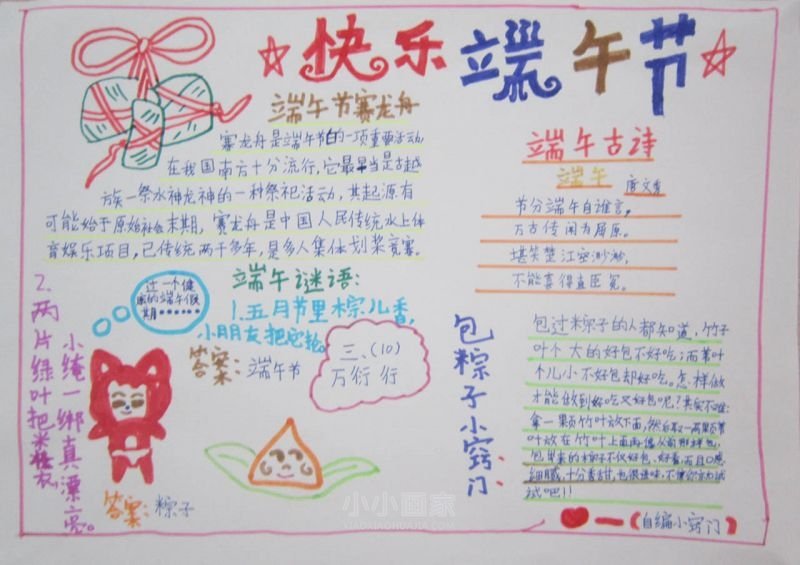 快乐端午节
端午节赛龙舟
赛龙舟是端午节的一项重要活动,
在我国南方十分流行,它最早当是古越
族一祭水神龙神的一种祭祀活动,其起源有
可能始于原始社会末期,赛龙舟是中国人民传统水上体
育娱乐项目,已传统两千多年,是多人集体划桨竞赛.
端午古诗
端午
唐文秀
节分端午自谁言,
万古传闻为屈原。
堪笑楚江空渺渺,
不能直臣冤。
过一个健
康的端午假
期
端午谜语:
1.五月节里粽儿香,
小朋友把它
答案:端午节
三、(10)
万行
2.两片绿叶把米
小绳一绑真漂亮。
答案:粽子
包粽子小窍门:
包过粽子的人都知道,竹子
叶个大的好包不好吃;而苇叶
个儿小不好包却好吃。怎样做
才能做到好吃又好包呢?其实不难:
拿一颗竹叶放下面,然后取一两颗苇
叶放在竹叶上面再像从前那样包,
包出来的粽子不仅好包、好看,而且口感
细腻,十分香甜,也很美味,不信你去试
试吧!!
(自编小窍门)
小小画家
XIAOXIAOHUAJIA.COM